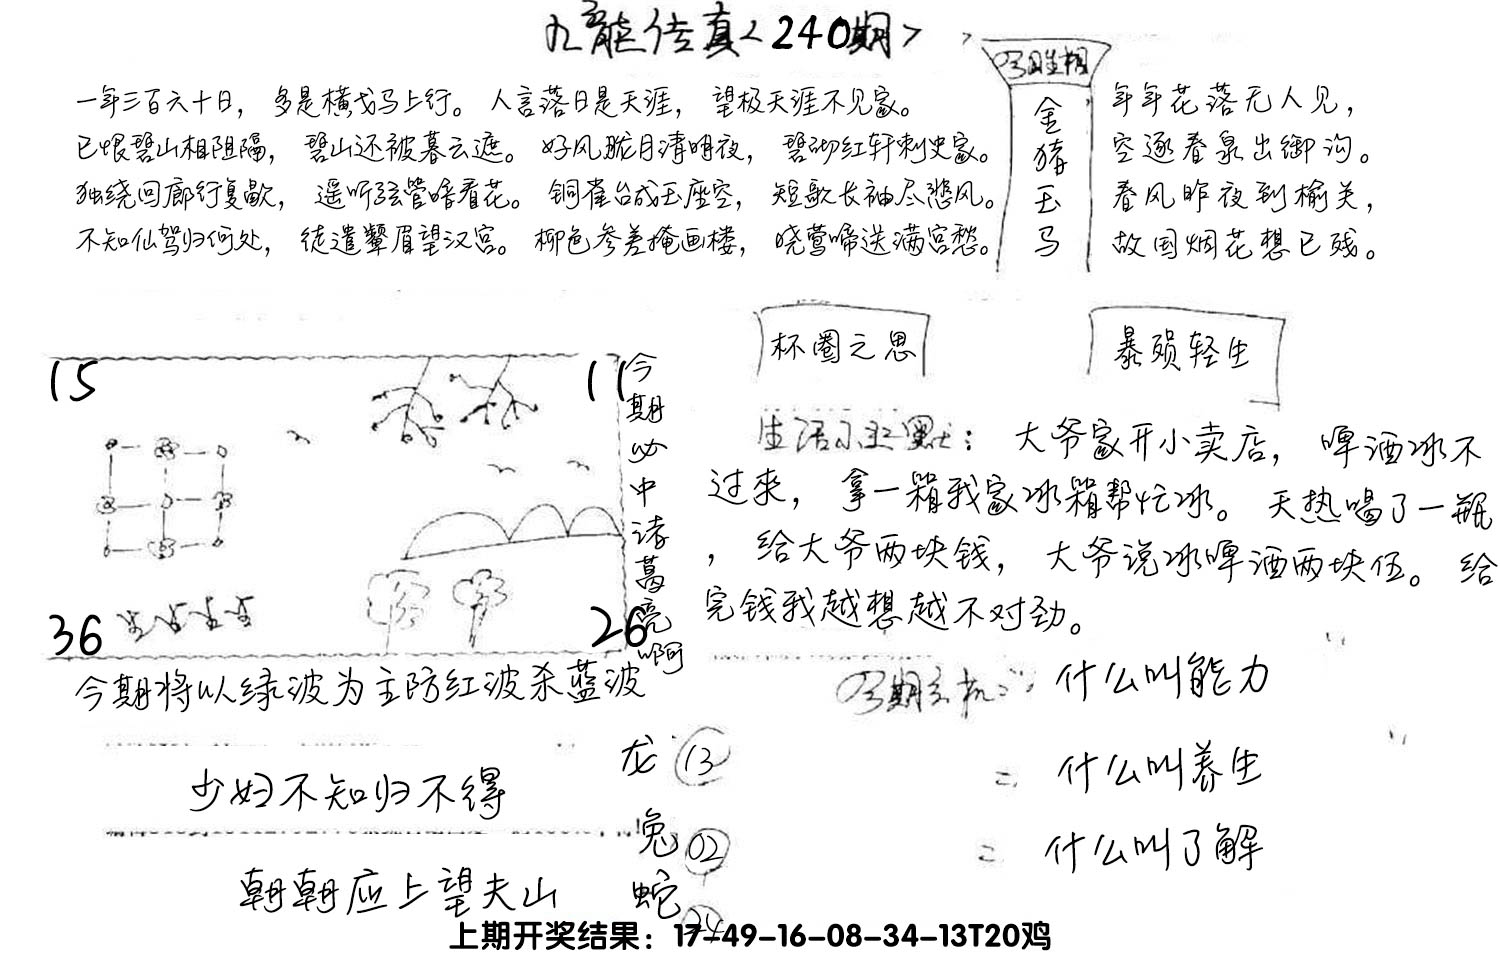 九龙传真<240期>
一年三百六十日，多是横戈马上行。人言落日是天涯，望极天涯不见家。
已恨碧山相阻隔，碧山还被暮云遮。好风胧月清明夜，碧砌红轩刺史家。
独绕回廊行复歇，遥听弦管暗看花。铜雀台成玉座空，短歌长袖尽悲风。
不知仙驾归何处，徒遣颦眉望汉宫。柳色参差掩画楼，晓莺啼送满宫愁。
金
猪
玉
马
年年花落无人见，
空逐春泉出御沟。
春风昨夜到榆关，
故国烟花想已残。
杯圈之思
暴殒轻生
15
11
36
26
今期必中诸葛亮啊
生活小幽默：大爷家开小卖店，啤酒冰不
过来，拿一箱我家冰箱帮忙冰。天热喝了一瓶
，给大爷两块钱，大爷说冰啤酒两块伍。给
完钱我越想越不对劲。
今期将以绿波为主防红波杀蓝波
今期玄机：什么叫能力
二 什么叫养生
二 什么叫了解
少妇不知归不得
朝朝应上望夫山
龙 13
兔 02
蛇
上期开奖结果：17-49-16-08-34-13T20鸡